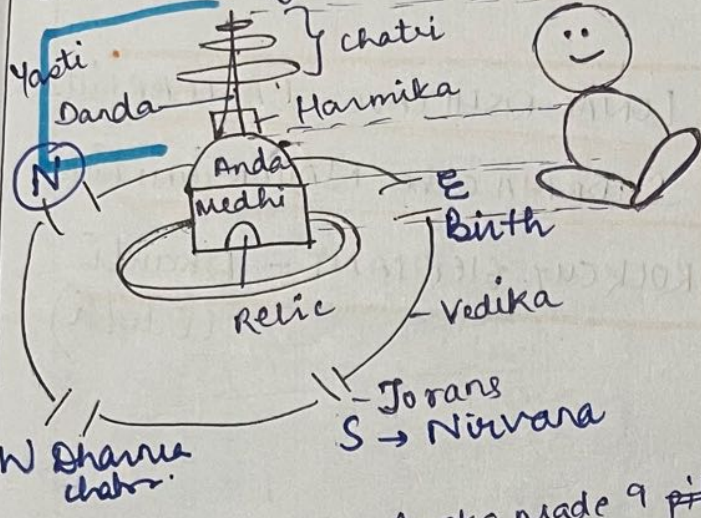 chatri
Yasti
Danda
Harmika
N
Anda
E
Medhi
Birth
Relic
Vedika
Torans
S → Nirvana
W Dharma
chakr.
made 9